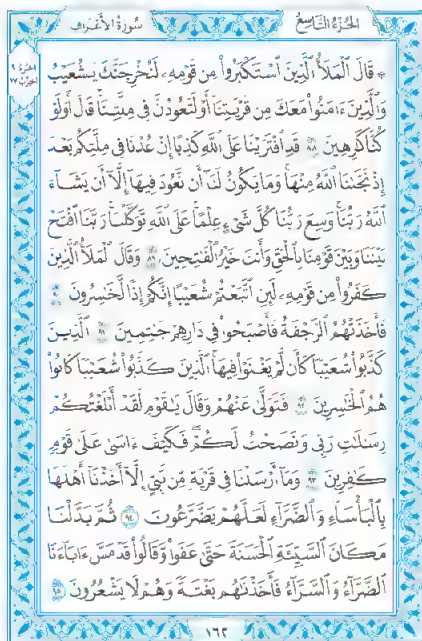 سُورَةُ الأَعْرَاف الجُزءُ التَّاسِعُ
۞ قَالَ ٱلْمَلَأُ ٱلَّذِينَ ٱسْتَكْبَرُوا۟ مِن قَوْمِهِۦ لَنُخْرِجَنَّكَ يَٰشُعَيْبُ
وَٱلَّذِينَ ءَامَنُوا۟ مَعَكَ مِن قَرْيَتِنَآ أَوْ لَتَعُودُنَّ فِى مِلَّتِنَا قَالَ أَوَلَوْ
كُنَّا كَٰرِهِينَ ٨٨ قَدِ ٱفْتَرَيْنَا عَلَى ٱللَّهِ كَذِبًا إِنْ عُدْنَا فِى مِلَّتِكُم بَعْدَ
إِذْ نَجَّىٰنَا ٱللَّهُ مِنْهَا وَمَا يَكُونُ لَنَآ أَن نَّعُودَ فِيهَآ إِلَّآ أَن يَشَآءَ
ٱللَّهُ رَبُّنَا وَسِعَ رَبُّنَا كُلَّ شَىْءٍ عِلْمًا عَلَى ٱللَّهِ تَوَكَّلْنَا رَبَّنَا ٱفْتَحْ
بَيْنَنَا وَبَيْنَ قَوْمِنَا بِٱلْحَقِّ وَأَنتَ خَيْرُ ٱلْفَٰتِحِينَ ٨٩ وَقَالَ ٱلْمَلَأُ ٱلَّذِينَ
كَفَرُوا۟ مِن قَوْمِهِۦ لَئِنِ ٱتَّبَعْتُمْ شُعَيْبًا إِنَّكُمْ إِذًا لَّخَٰسِرُونَ ٩٠
فَأَخَذَتْهُمُ ٱلرَّجْفَةُ فَأَصْبَحُوا۟ فِى دَارِهِمْ جَٰثِمِينَ ٩١ ٱلَّذِينَ
كَذَّبُوا۟ شُعَيْبًا كَأَن لَّمْ يَغْنَوْا۟ فِيهَا ٱلَّذِينَ كَذَّبُوا۟ شُعَيْبًا كَانُوا۟
هُمُ ٱلْخَٰسِرِينَ ٩٢ فَتَوَلَّىٰ عَنْهُمْ وَقَالَ يَٰقَوْمِ لَقَدْ أَبْلَغْتُكُمْ
رِسَٰلَٰتِ رَبِّى وَنَصَحْتُ لَكُمْ فَكَيْفَ ءَاسَىٰ عَلَىٰ قَوْمٍ
كَٰفِرِينَ ٩٣ وَمَآ أَرْسَلْنَا فِى قَرْيَةٍ مِّن نَّبِىٍّ إِلَّآ أَخَذْنَآ أَهْلَهَا
بِٱلْبَأْسَآءِ وَٱلضَّرَّآءِ لَعَلَّهُمْ يَضَّرَّعُونَ ٩٤ ثُمَّ بَدَّلْنَا
مَكَانَ ٱلسَّيِّئَةِ ٱلْحَسَنَةَ حَتَّىٰ عَفَوا۟ وَّقَالُوا۟ قَدْ مَسَّ ءَابَآءَنَا
ٱلضَّرَّآءُ وَٱلسَّرَّآءُ فَأَخَذْنَٰهُم بَغْتَةً وَهُمْ لَا يَشْعُرُونَ ٩٥
١٦٢
الجزء ٩
الحزب ١٧